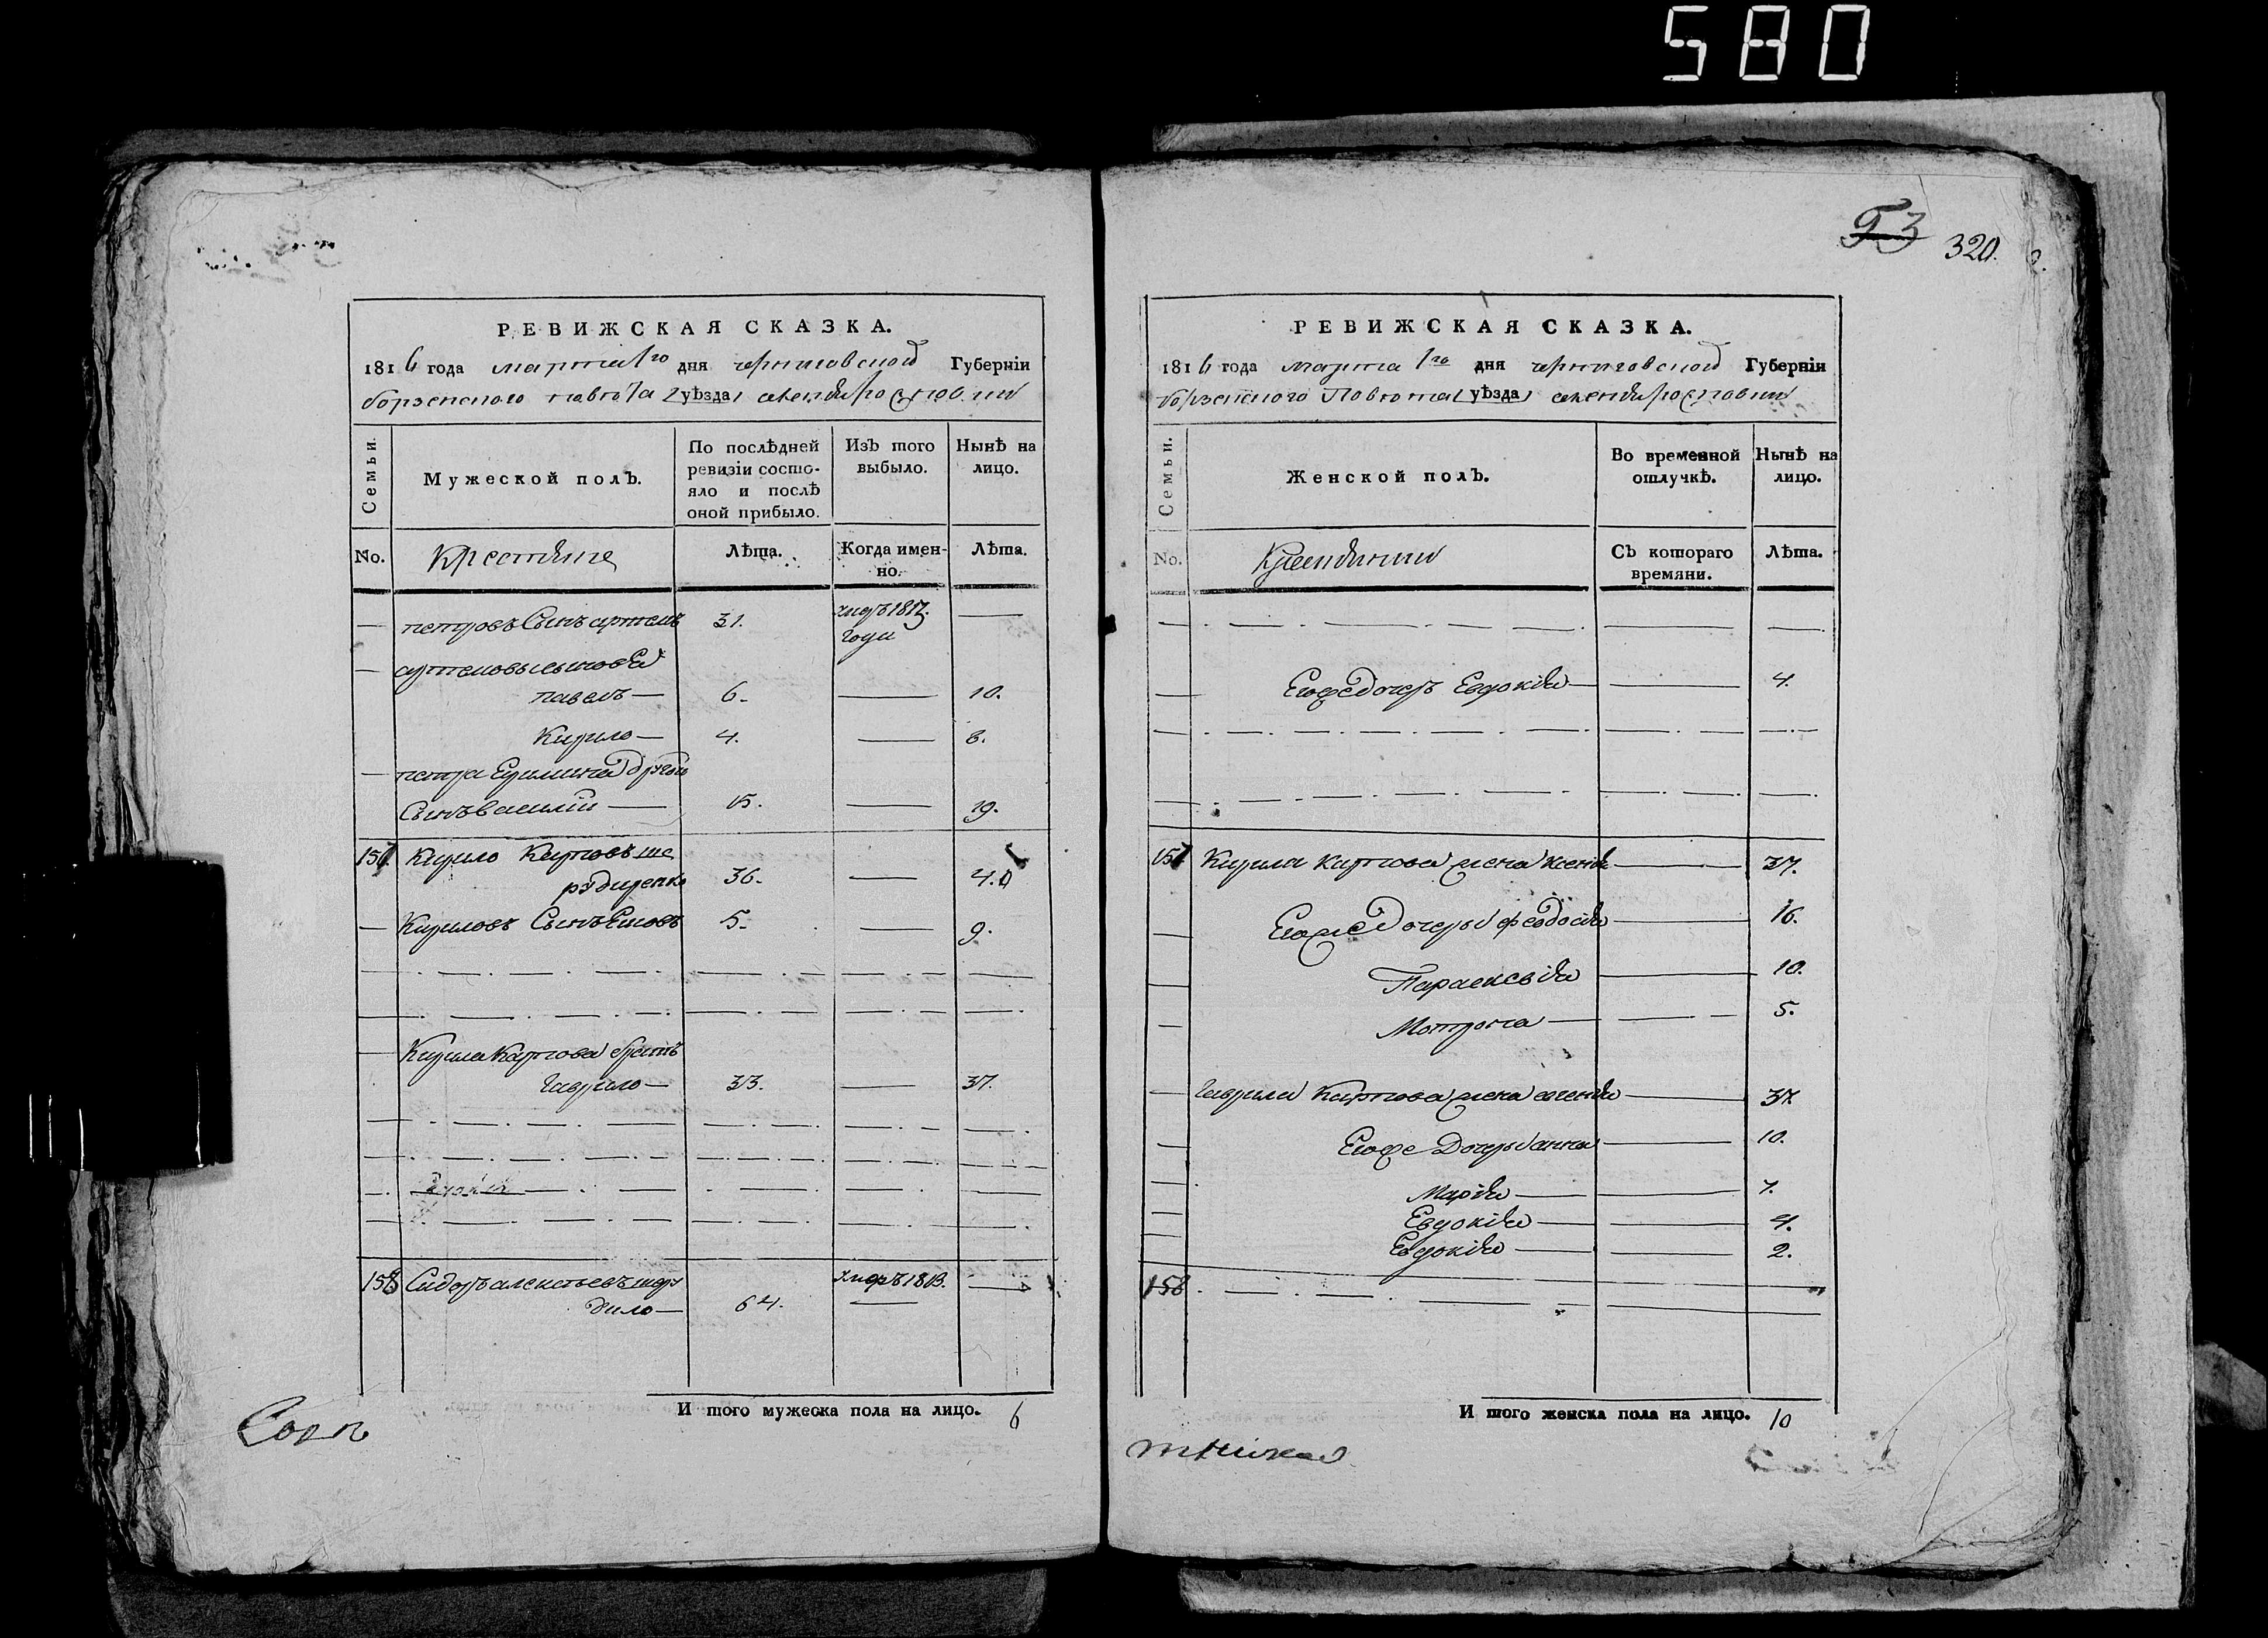 580
РЕВИЖСКАЯ СКАЗКА.
1816 года марта 1го дня черниговской Губерніи
борзенского повѣта уѣзда
Семьи.
Мужеской полъ.
По послѣдней ревизіи состояло и послѣ оной прибыло.
Изъ того выбыло.
Нынѣ на лицо.
No.
Крестьяне
Лѣта.
Когда именно.
Лѣта.
— петровъ Сынъ артемъ 31. —
годы
— артемовы сыновья
павелъ — 6. — 10.
Кирило — 4. — 8.
— петра другой
Сынъ василій — 15. — 19.
157 Кирило Карповъ ше
36. — 40
— Кириловъ Сынъ 5. — 9.
— Кирила Карпова братъ
гаврило — 33. — 37.
158 Сидоръ алексѣевъ
дило — 64. 1813. —
И того мужеска пола на лицо. 6
320.
РЕВИЖСКАЯ СКАЗКА.
1816 года марта 1го дня черниговской Губерніи
борзенского Повѣта уѣзда
Семьи.
Женской полъ.
Во временной отлучкѣ.
Нынѣ на лицо.
No.
Съ котораго времяни.
Лѣта.
— Егоже дочеръ Евдокія — 4.
157 Кирила Карпова жена — 37.
— Егоже Дочеры феодосія — 16.
— Параскевія — 10.
— Мотрона — 5.
— гаврила Карпова жена — 37.
— Егоже Дочеры анна — 10.
— Марія — 7.
— Евдокія — 4.
— Евдокія — 2.
158
И того женска пола на лицо. 10